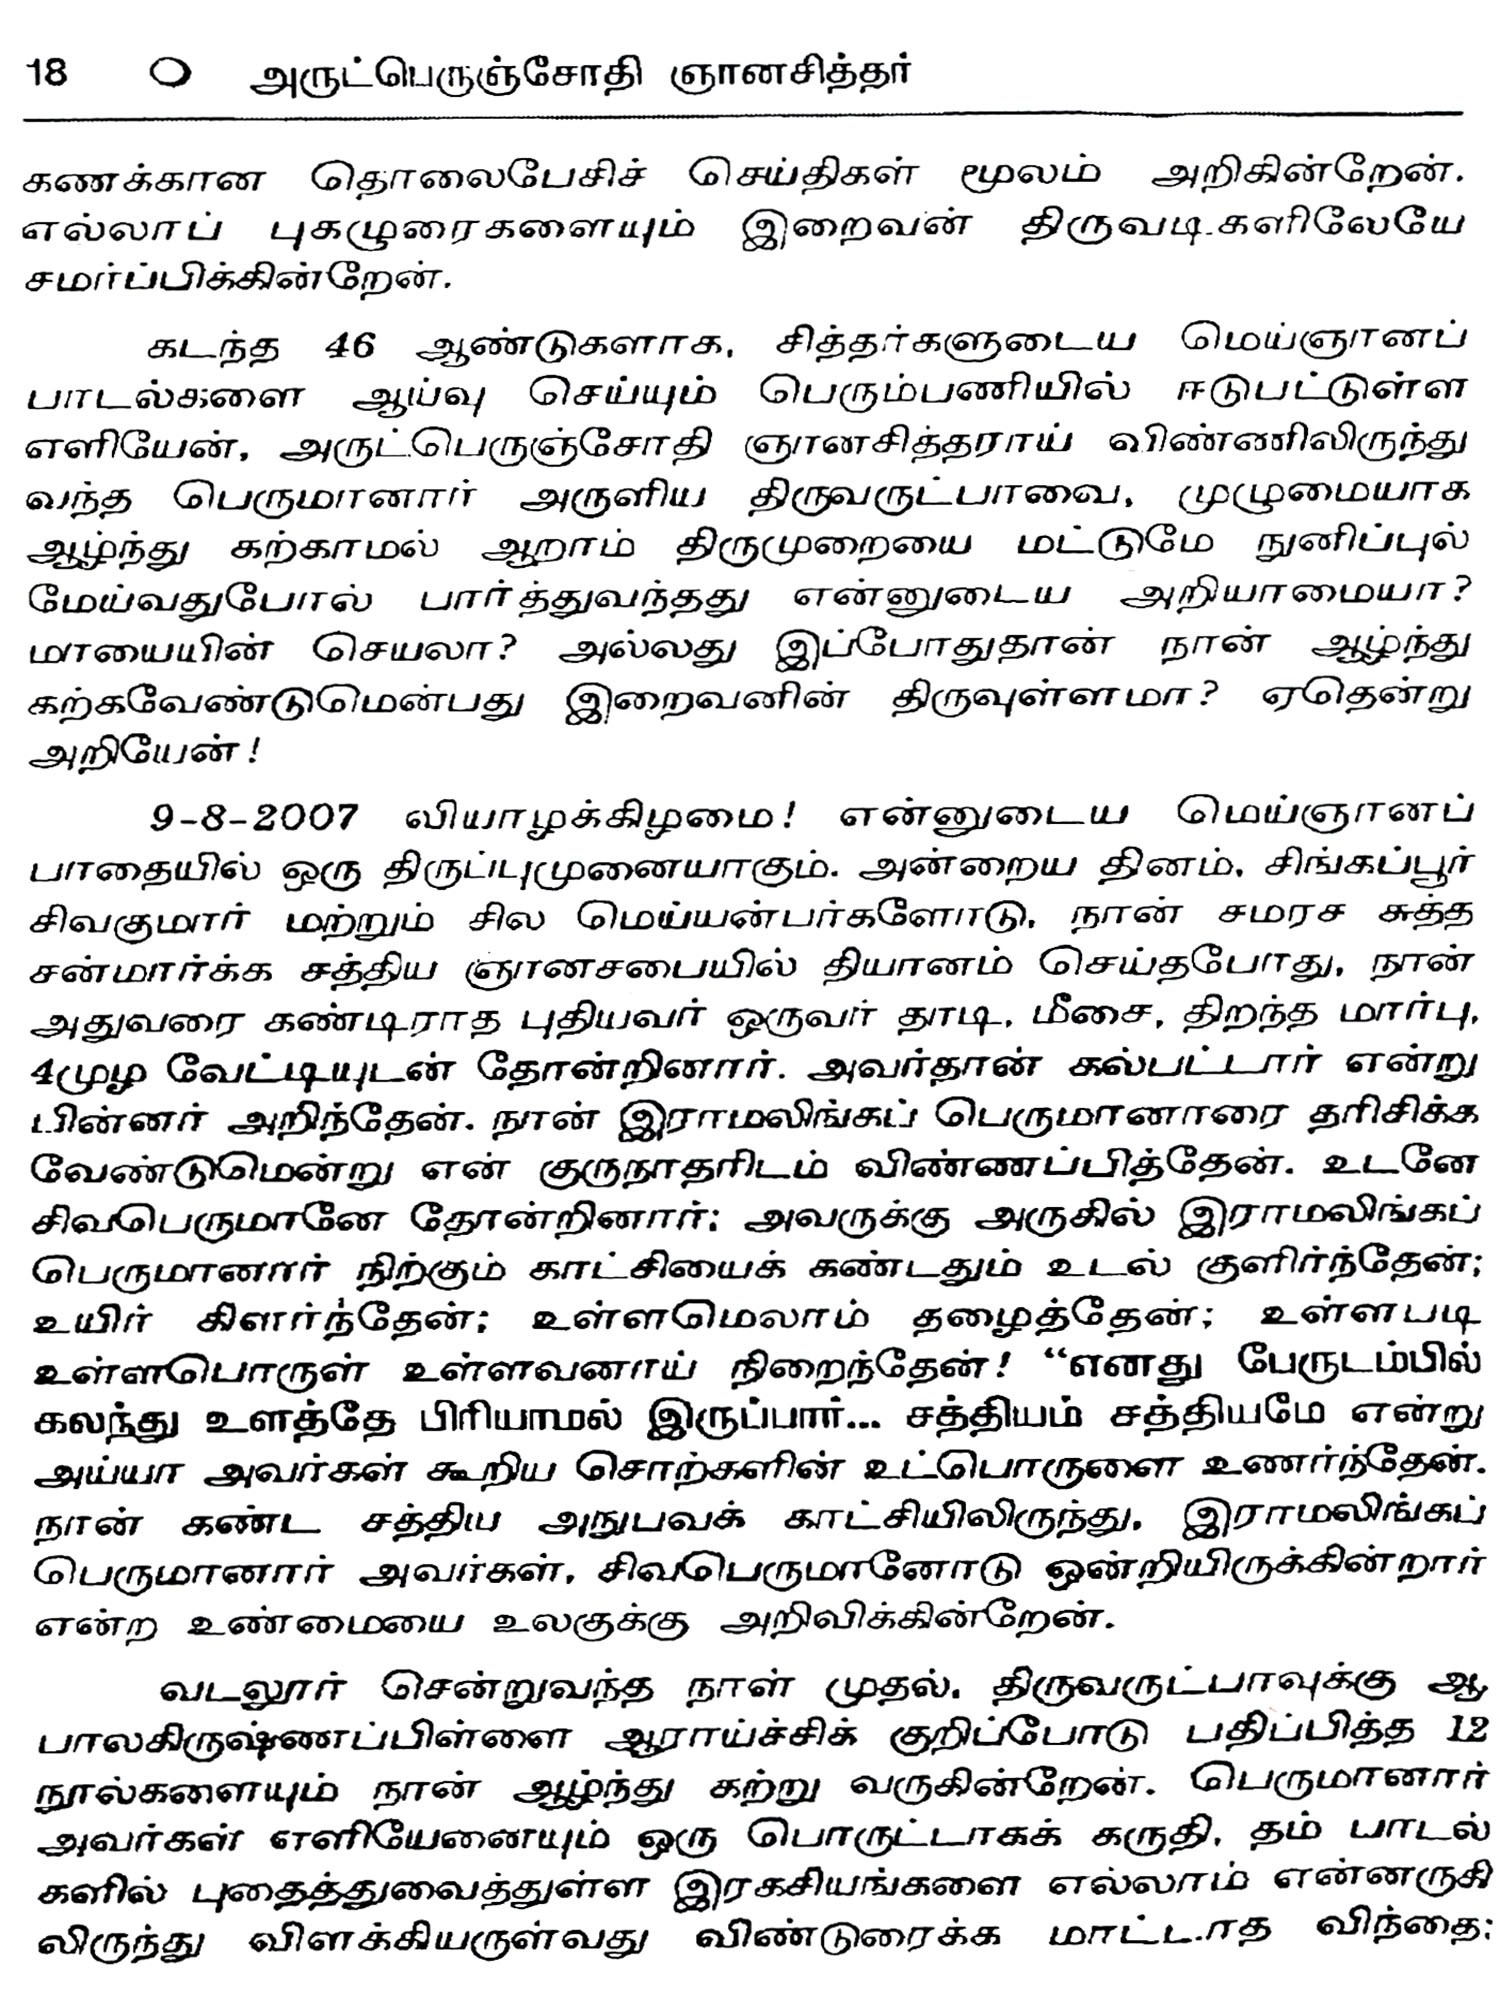 18 O அருட்பெருஞ்சோதி ஞானசித்தர்
கணக்கான தொலைபேசிச் செய்திகள் மூலம் அறிகின்றேன்.
எல்லாப் புகழுரைகளையும் இறைவன் திருவடிகளிலேயே
சமர்ப்பிக்கின்றேன்.
கடந்த 46 ஆண்டுகளாக, சித்தர்களுடைய மெய்ஞானப்
பாடல்களை ஆய்வு செய்யும் பெரும்பணியில் ஈடுபட்டுள்ள
எளியேன், அருட்பெருஞ்சோதி ஞானசித்தராய் விண்ணிலிருந்து
வந்த பெருமானார் அருளிய திருவருட்பாவை, முழுமையாக
ஆழ்ந்து கற்காமல் ஆறாம் திருமுறையை மட்டுமே நுனிப்புல்
மேய்வதுபோல் பார்த்துவந்தது என்னுடைய அறியாமையா?
மாயையின் செயலா? அல்லது இப்போதுதான் நான் ஆழ்ந்து
கற்கவேண்டுமென்பது இறைவனின் திருவுள்ளமா? ஏதென்று
அறியேன்!
9-8-2007 வியாழக்கிழமை! என்னுடைய மெய்ஞானப்
பாதையில் ஒரு திருப்புமுனையாகும். அன்றைய தினம், சிங்கப்பூர்
சிவகுமார் மற்றும் சில மெய்யன்பர்களோடு, நான் சமரச சுத்த
சன்மார்க்க சத்திய ஞானசபையில் தியானம் செய்தபோது, நான்
அதுவரை கண்டிராத புதியவர் ஒருவர் தாடி, மீசை, திறந்த மார்பு,
4முழ வேட்டியுடன் தோன்றினார். அவர்தான் கல்பட்டார் என்று
பின்னர் அறிந்தேன். நான் இராமலிங்கப் பெருமானாரை தரிசிக்க
வேண்டுமென்று என் குருநாதரிடம் விண்ணப்பித்தேன். உடனே
சிவபெருமானே தோன்றினார்; அவருக்கு அருகில் இராமலிங்கப்
பெருமானார் நிற்கும் காட்சியைக் கண்டதும் உடல் குளிர்ந்தேன்;
உயிர் கிளர்ந்தேன்; உள்ளமெலாம் தழைத்தேன்; உள்ளபடி
உள்ளபொருள் உள்ளவனாய் நிறைந்தேன்! “எனது பேருடம்பில்
கலந்து உளத்தே பிரியாமல் இருப்பார்... சத்தியம் சத்தியமே என்று
அய்யா அவர்கள் கூறிய சொற்களின் உட்பொருளை உணர்ந்தேன்.
நான் கண்ட சத்திய அநுபவக் காட்சியிலிருந்து, இராமலிங்கப்
பெருமானார் அவர்கள், சிவபெருமானோடு ஒன்றியிருக்கின்றார்
என்ற உண்மையை உலகுக்கு அறிவிக்கின்றேன்.
வடலூர் சென்றுவந்த நாள் முதல், திருவருட்பாவுக்கு ஆ
பாலகிருஷ்ணப்பிள்ளை ஆராய்ச்சிக் குறிப்போடு பதிப்பித்த 12
நூல்களையும் நான் ஆழ்ந்து கற்று வருகின்றேன். பெருமானார்
அவர்கள் எளியேனையும் ஒரு பொருட்டாகக் கருதி, தம் பாடல்
களில் புதைத்துவைத்துள்ள இரகசியங்களை எல்லாம் என்னருகி
லிருந்து விளக்கியருள்வது விண்டுரைக்க மாட்டாத விந்தை;